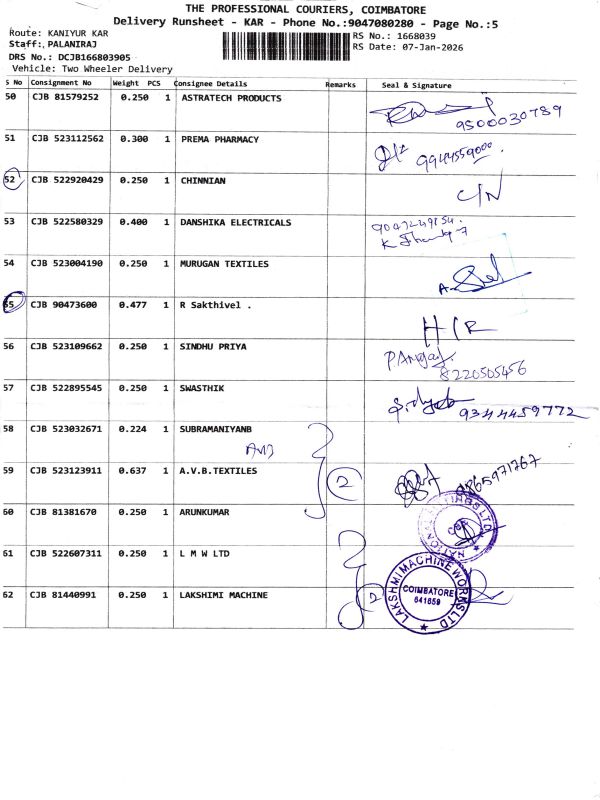 THE PROFESSIONAL COURIERS, COIMBATORE
Delivery Runsheet - KAR - Phone No.:9047080280 - Page No.:5
Route: KANIYUR KAR
Staff: PALANIRAJ
RS No.: 1668039
DRS No.: DCJB166803905
RS Date: 07-Jan-2026
Vehicle: Two Wheeler Delivery
S No Consignment No Weight PCS Consignee Details Remarks Seal & Signature
50 CJB 81579252 0.250 1 ASTRATECH PRODUCTS
9500030789
51 CJB 523112562 0.300 1 PREMA PHARMACY
9944559000
52 CJB 522920429 0.250 1 CHINNIAN
C/N
53 CJB 522580329 0.400 1 DANSHIKA ELECTRICALS
54 CJB 523004190 0.250 1 MURUGAN TEXTILES
55 CJB 90473600 0.477 1 R Sakthivel .
56 CJB 523109662 0.250 1 SINDHU PRIYA
8220505456
57 CJB 522895545 0.250 1 SWASTHIK
9344459772
58 CJB 523032671 0.224 1 SUBRAMANIYANB
59 CJB 523123911 0.637 1 A.V.B.TEXTILES
2
9865971767
60 CJB 81381670 0.250 1 ARUNKUMAR
61 CJB 522607311 0.250 1 L M W LTD
62 CJB 81440991 0.250 1 LAKSHIMI MACHINE
2
LAKSHMI MACHINE WORKS LTD
COIMBATORE
641659